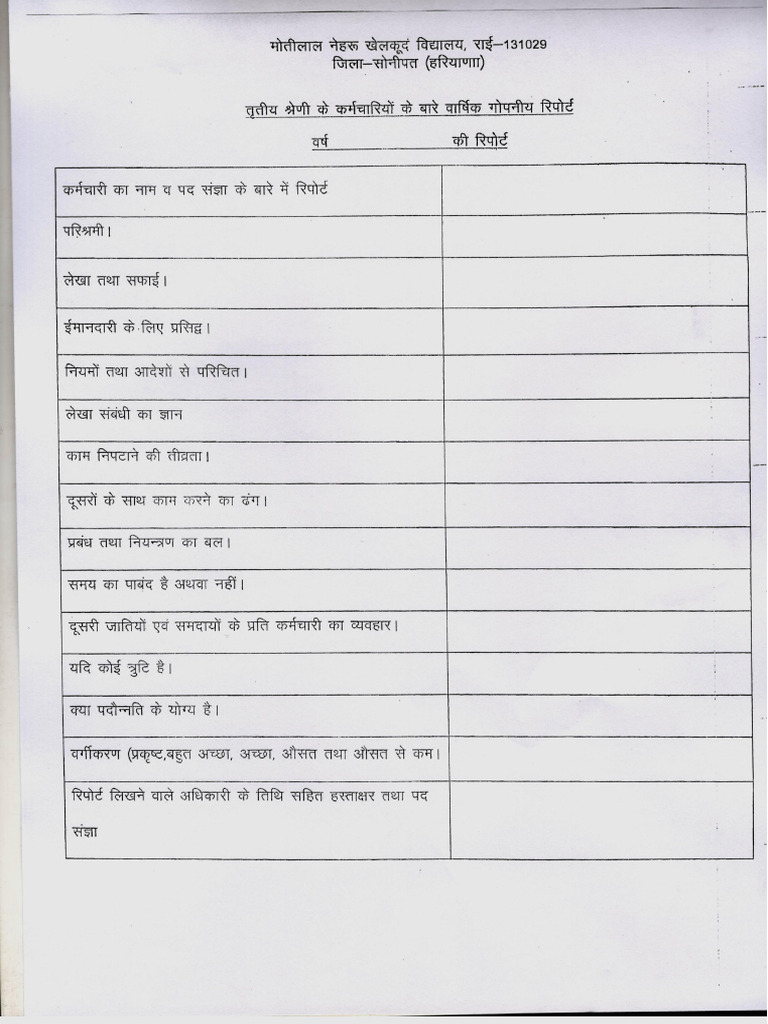 मोतीलाल नेहरू खेलकूदं विद्यालय, राई–131029
जिला–सोनीपत (हरियाणाा)
तृतीय श्रेणी के कर्मचारियों के बारे वार्षिक गोपनीय रिपोर्ट
वर्ष ______________ की रिपोर्ट
कर्मचारी का नाम व पद संज्ञा के बारे में रिपोर्ट
परिश्रमी।
लेखा तथा सफाई।
ईमानदारी के लिए प्रसिद्व।
नियमों तथा आदेशों से परिचित।
लेखा संबंधी का ज्ञान
काम निपटाने की तीव्रता।
दूसरों के साथ काम करने का ढंग।
प्रबंध तथा नियन्त्रण का बल।
समय का पाबंद है अथवा नहीं।
दूसरी जातियों एवं समदायों के प्रति कर्मचारी का व्यवहार।
यदि कोई त्रुटि है।
क्या पदौन्नति के योग्य है।
वर्गीकरण (प्रकृष्ट,बहुत अच्छा, अच्छा, औसत तथा औसत से कम।
रिपोर्ट लिखने वाले अधिकारी के तिथि सहित हस्ताक्षर तथा पद
संज्ञा